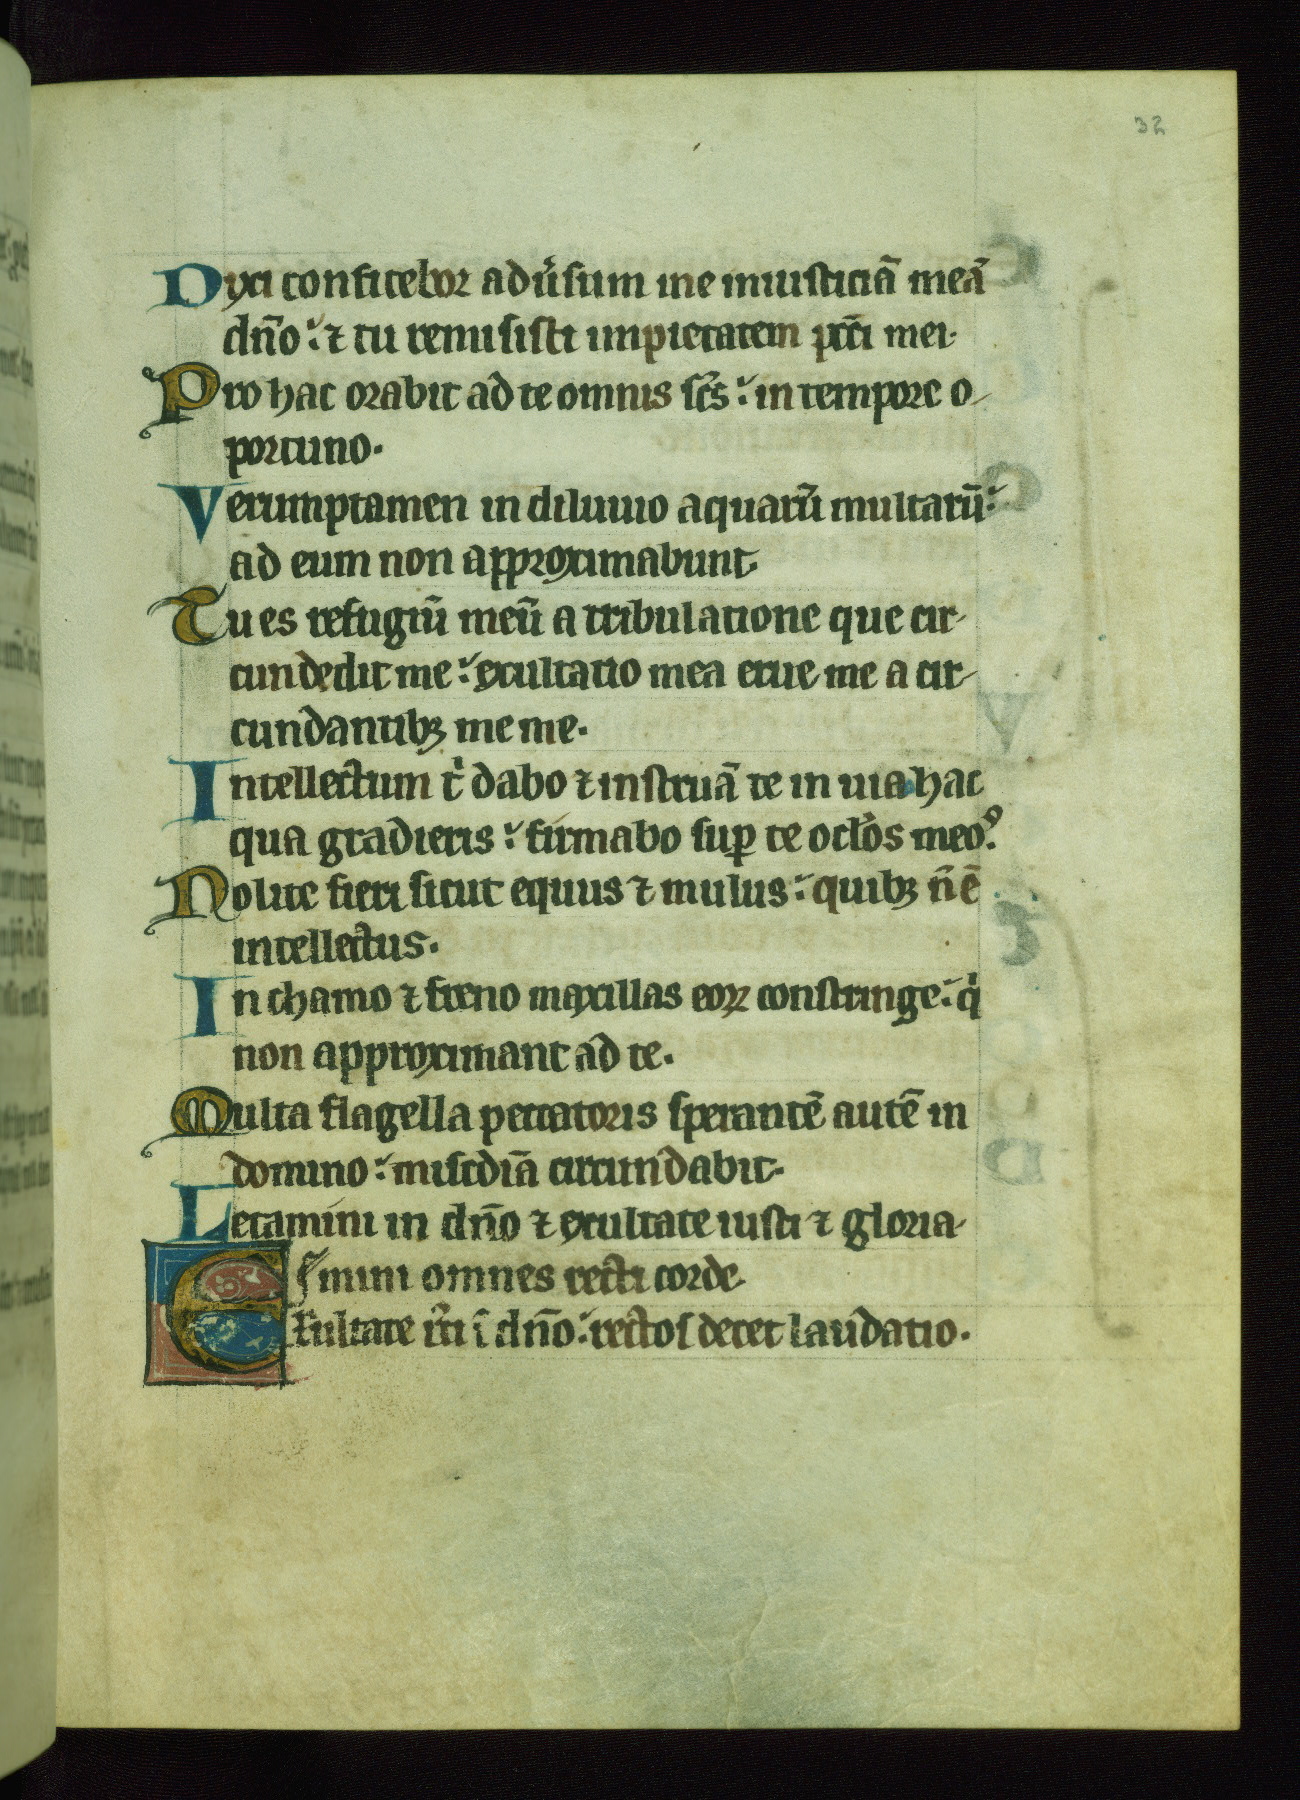 32
Dyxi confitebor adu̓sum me iniusticiā meā
dn̄o ⁊ tu remisisti impietatem pcc̄i mei.
Pro hac orabit ad te omnis sc̄s: in tempore o-
portuno.
Verumptamen in diluuio aquarū multarū:
ad eum non approximabunt.
Tu es refugiū meū a tribulatione que cir-
cundedit me: exultatio mea erue me a cir-
cundantibꝫ me me.
Intellectum t̓ dabo ⁊ instruā te in uia hac
qua gradieris: firmabo suꝑ te oclo̓s meo⁹.
Nolite fieri sicut equus ⁊ mulus: quibꝫ n̄ ē
intellectus.
In chamo ⁊ freno maxillas eoꝝ constringe: q̇
non approximant ad te.
Multa flagella peccatoris sperantē autē in
domino: misc̄diā circundabit.
Letamini in dn̄o ⁊ exultate iusti ⁊ gloria-
mini omnes recti corde.
Exultate iu̓ti ī dn̄o: rectos decet laudatio.